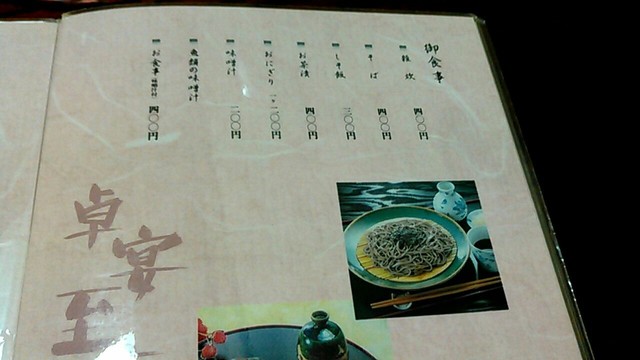 御食事
雑炊 四〇〇円
そば 四〇〇円
しそ飯 三〇〇円
お茶漬 四〇〇円
おにぎり 一ヶ一〇〇円
味噌汁 二〇〇円
魚類の味噌汁
お食事(味噌汁付) 四〇〇円
卓
宴
至